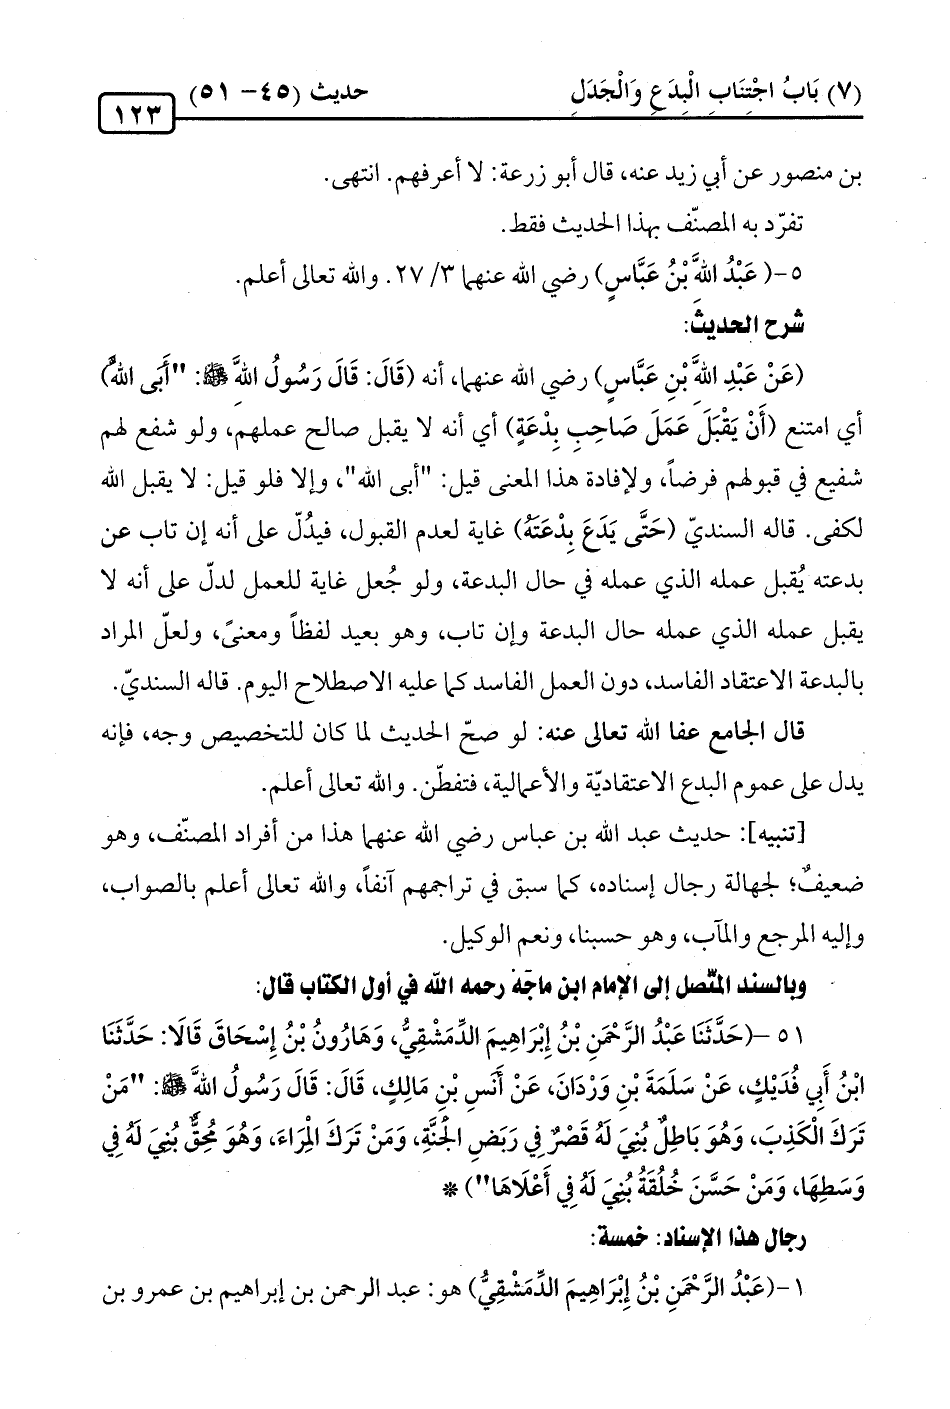 (٧) بَابُ اجْتِنَابِ الْبِدَعِ وَالْجَدَلِ حديث (٤٥- ٥١)
١٢٣
بن منصور عن أبي زيد عنه، قال أبو زرعة: لا أعرفهم. انتهى.
تفرّد به المصنّف بهذا الحديث فقط.
٥-( عَبْدُ اللهَّ بْنُ عَبَّاسٍ) رضي الله عنهما ٣/ ٢٧. والله تعالى أعلم.
شرح الحديث:
(عَنْ عَبْدِ اللهَّ بْنِ عَبَّاسٍ) رضي الله عنهما، أنه (قَالَ: قَالَ رَسُولُ اللهَّ ﷺ: "أَبَى اللهُ)
أي امتنع (أَنْ يَقْبَلَ عَمَلَ صَاحِبِ بِدْعَةٍ) أي أنه لا يقبل صالح عملهم، ولو شفع لهم
شفيع في قبولهم فرضاً، ولإفادة هذا المعنى قيل: "أبى الله"، وإلا فلو قيل: لا يقبل الله
لكفى. قاله السنديّ (حَتَّى يَدَعَ بِدْعَتَهُ) غاية لعدم القبول، فيدُلّ على أنه إن تاب عن
بدعته يُقبل عمله الذي عمله في حال البدعة، ولو جُعل غاية للعمل لدلّ على أنه لا
يقبل عمله الذي عمله حال البدعة وإن تاب، وهو بعيد لفظاً ومعنىً، ولعلّ المراد
بالبدعة الاعتقاد الفاسد، دون العمل الفاسد كما عليه الاصطلاح اليوم. قاله السنديّ.
قال الجامع عفا الله تعالى عنه: لو صحّ الحديث لما كان للتخصيص وجه، فإنه
يدل على عموم البدع الاعتقاديّة والأعمالية، فتفطّن. والله تعالى أعلم.
[تنبيه]: حديث عبد الله بن عباس رضي الله عنهما هذا من أفراد المصنّف، وهو
ضعيفٌ؛ لجهالة رجال إسناده، كما سبق في تراجمهم آنفاً، والله تعالى أعلم بالصواب،
وإليه المرجع والمآب، وهو حسبنا، ونعم الوكيل.
وبالسند المتّصل إلى الإمام ابن ماجة رحمه الله في أول الكتاب قال:
٥١ –(حَدَّثَنَا عَبْدُ الرَّحْمَنِ بْنُ إِبْرَاهِيمَ الدِّمَشْقِيُّ، وَهَارُونُ بْنُ إِسْحَاقَ قَالَا: حَدَّثَنَا
ابْنُ أَبِي فُدَيْكٍ، عَنْ سَلَمَةَ بْنِ وَرْدَانَ، عَنْ أَنَسِ بْنِ مَالِكٍ، قَالَ: قَالَ رَسُولُ اللهَّ ﷺ: "مَنْ
تَرَكَ الْكَذِبَ، وَهُوَ بَاطِلٌ بُنِيَ لَهُ قَصْرٌ فِي رَبَضِ الْجَنَّةِ، وَمَنْ تَرَكَ الْمِرَاءَ، وَهُوَ مُحِقٌّ بُنِيَ لَهُ فِي
وَسَطِهَا، وَمَنْ حَسَّنَ خُلُقَهُ بُنِيَ لَهُ فِي أَعْلَاهَا") *
رجال هذا الإسناد: خمسة:
١-(عَبْدُ الرَّحْمَنِ بْنُ إِبْرَاهِيمَ الدِّمَشْقِيُّ) هو: عبد الرحمن بن إبراهيم بن عمرو بن